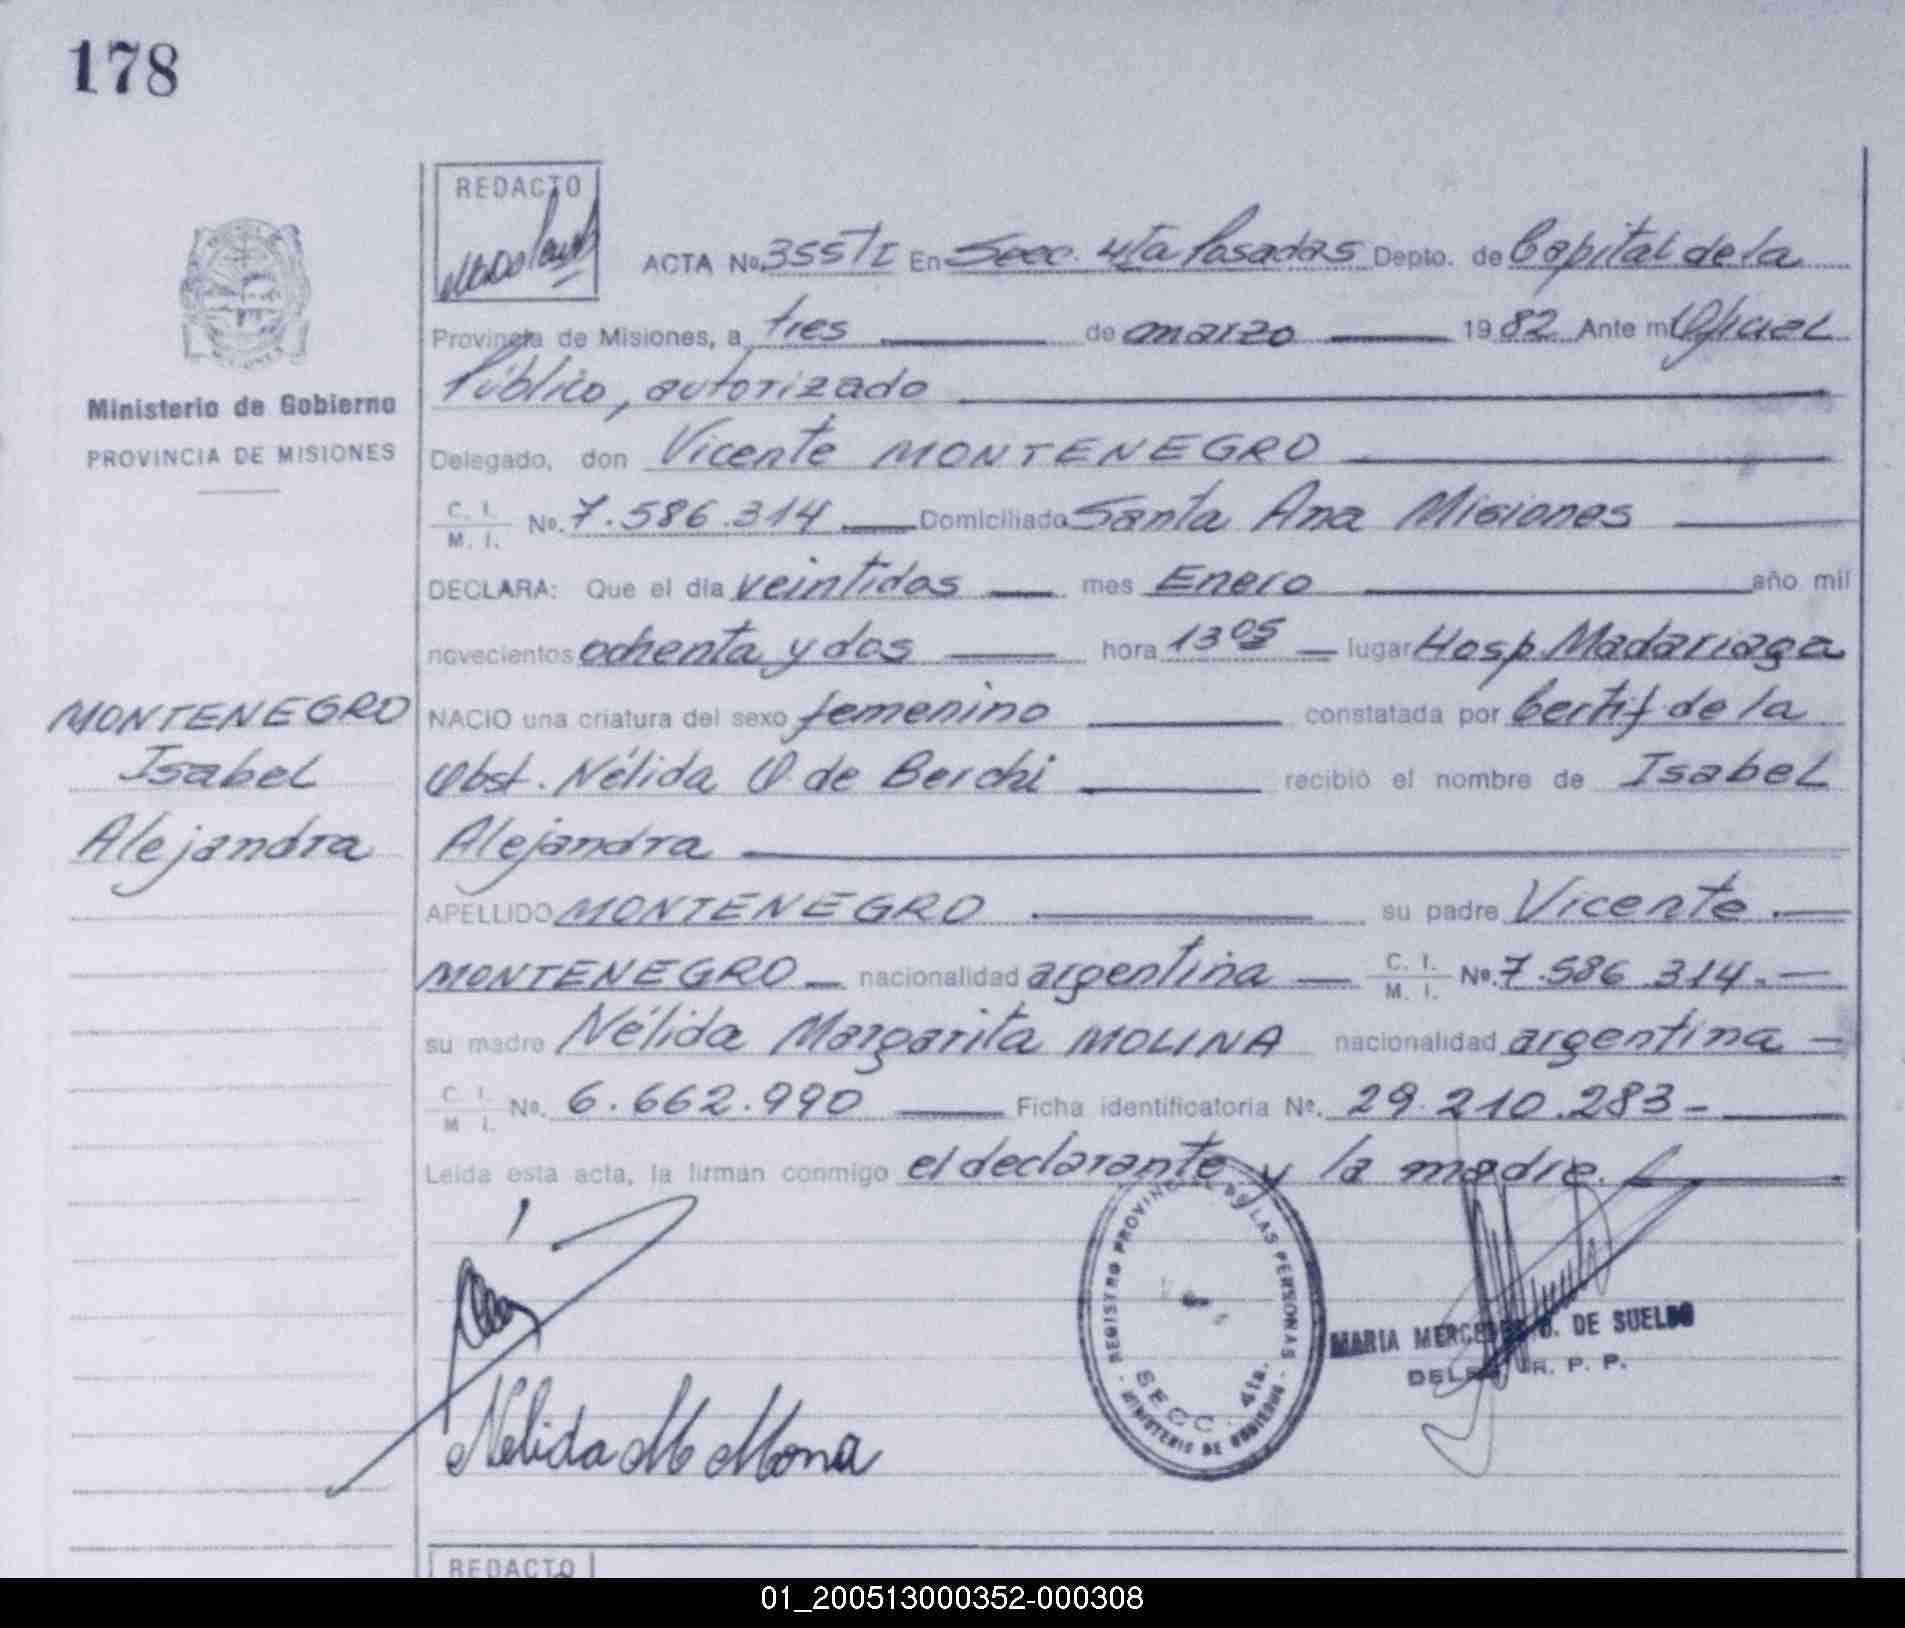 178
REDACTO
ACTA Nº 355/I En Secc. 4ta Posadas Depto. de Capital de la
Provincia de Misiones, a tres de marzo 1982 Ante mi Oficial
Público, autorizado
Ministerio de Gobierno
PROVINCIA DE MISIONES
Delegado, don Vicente MONTENEGRO
C. I. M. I. Nº. 7.586.314 Domiciliado Santa Ana Misiones
DECLARA: Que el día veintidos mes Enero año mil
novecientos ochenta y dos hora 13 05 lugar Hosp. Madariaga
MONTENEGRO
Isabel
Alejandra
NACIO una criatura del sexo femenino constatada por Certif. de la
Obst. Nélida O. de Berchi recibió el nombre de Isabel
Alejandra
APELLIDO MONTENEGRO su padre Vicente
MONTENEGRO nacionalidad argentina C. I. M. I. Nº. 7.586.314.
su madre Nélida Margarita MOLINA nacionalidad argentina
C. I. M. I. Nº. 6.662.990 Ficha identificatoria Nº. 29.210.283
Leída esta acta, la firman conmigo el declarante y la madre.
REGISTRO PROVINCIAL DE LAS PERSONAS
SECC. 4ta.
- MINISTERIO DE GOBIERNO -
MARIA MERCEDES DE SUELDO
R. P. P.
Nelida M
REDACTO
01_200513000352-000308